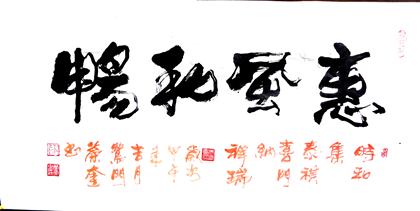 惠風和暢
時和
集
泰祺
喜門
納
祥瑞
歲次
甲午
年
吉月
鷺門
蔡奎
書